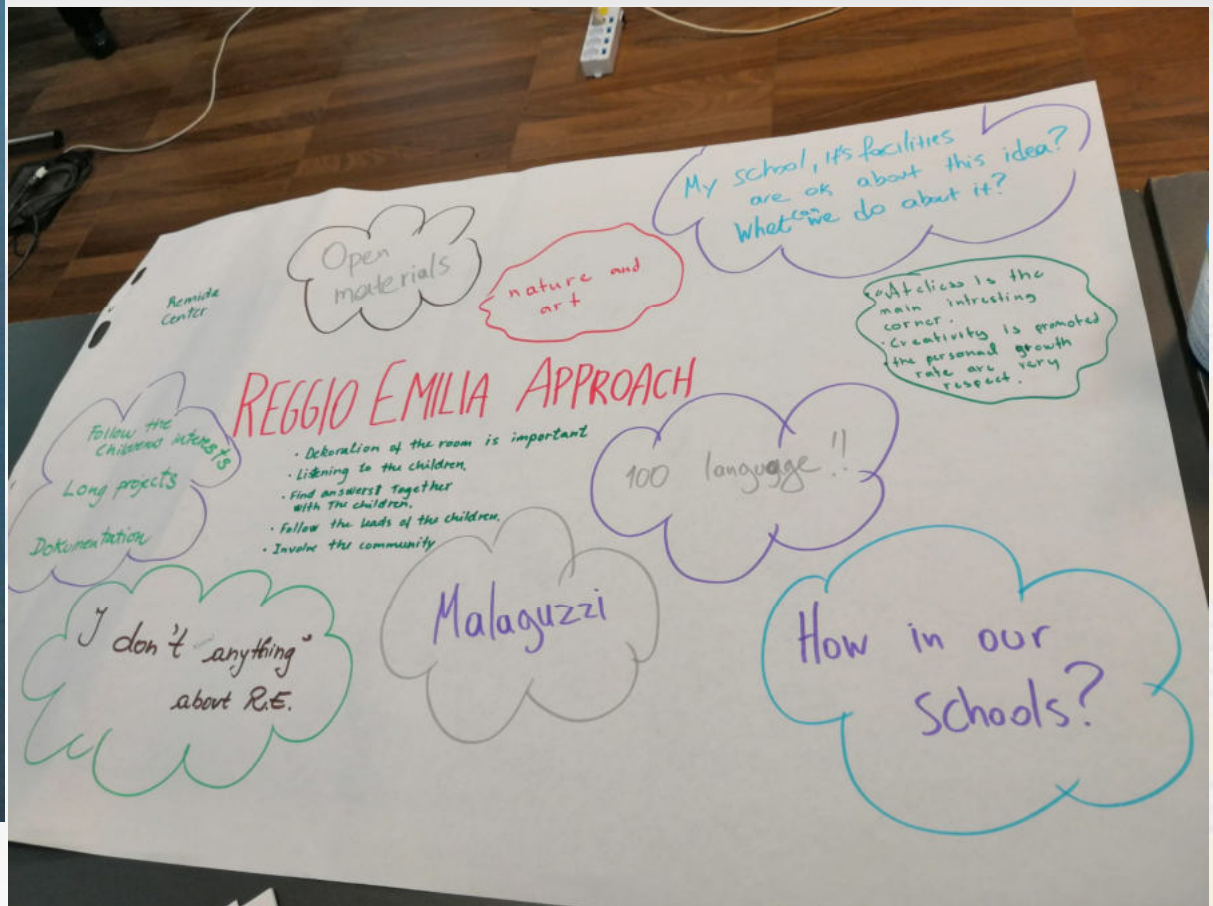 My school, it's facilities
are ok about this idea?
What can we do about it?
Open
materials
nature and
art
Remida
Center
· Atelies is the
main intresting
corner.
· Creativity is promoted
· the personal growth
rate are very
respect.
REGGIO EMILIA APPROACH
· Dekoration of the room is important
· Listening to the children.
· Find answerst Together
with The children.
· Follow the leads of the children.
· Involve the community
Follow the
Childrens interests
Long projects
Dokumentation
100 langugge!!
Malaguzzi
I don't anything"
about R.E.
How in our
schools?